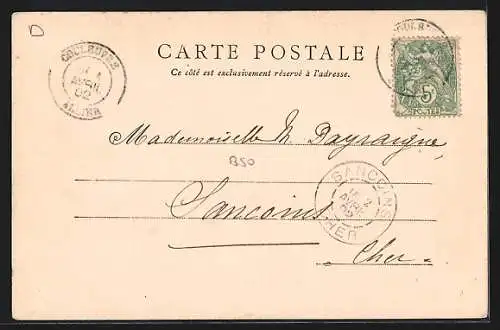 D
COULEUVRE
AVRIL
02
ALLIER
CARTE POSTALE
Ce côté est exclusivement réservé à l'adresse.
5
Mademoiselle M. Dayraigne
B50
Sancoins
SANCOINS
2
AVRIL
02
CHER
Cher